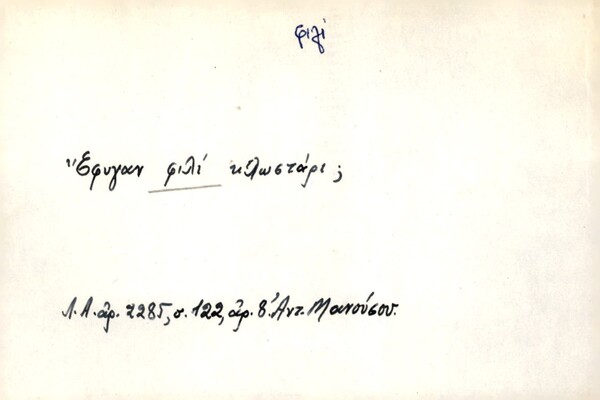 φιλί
Ἔφυγαν φιλί κλωστάρι;
Λ.Α. ἀρ. 2285, σ. 122, ἀρ. 8. Ἀντ. Μανούσου.